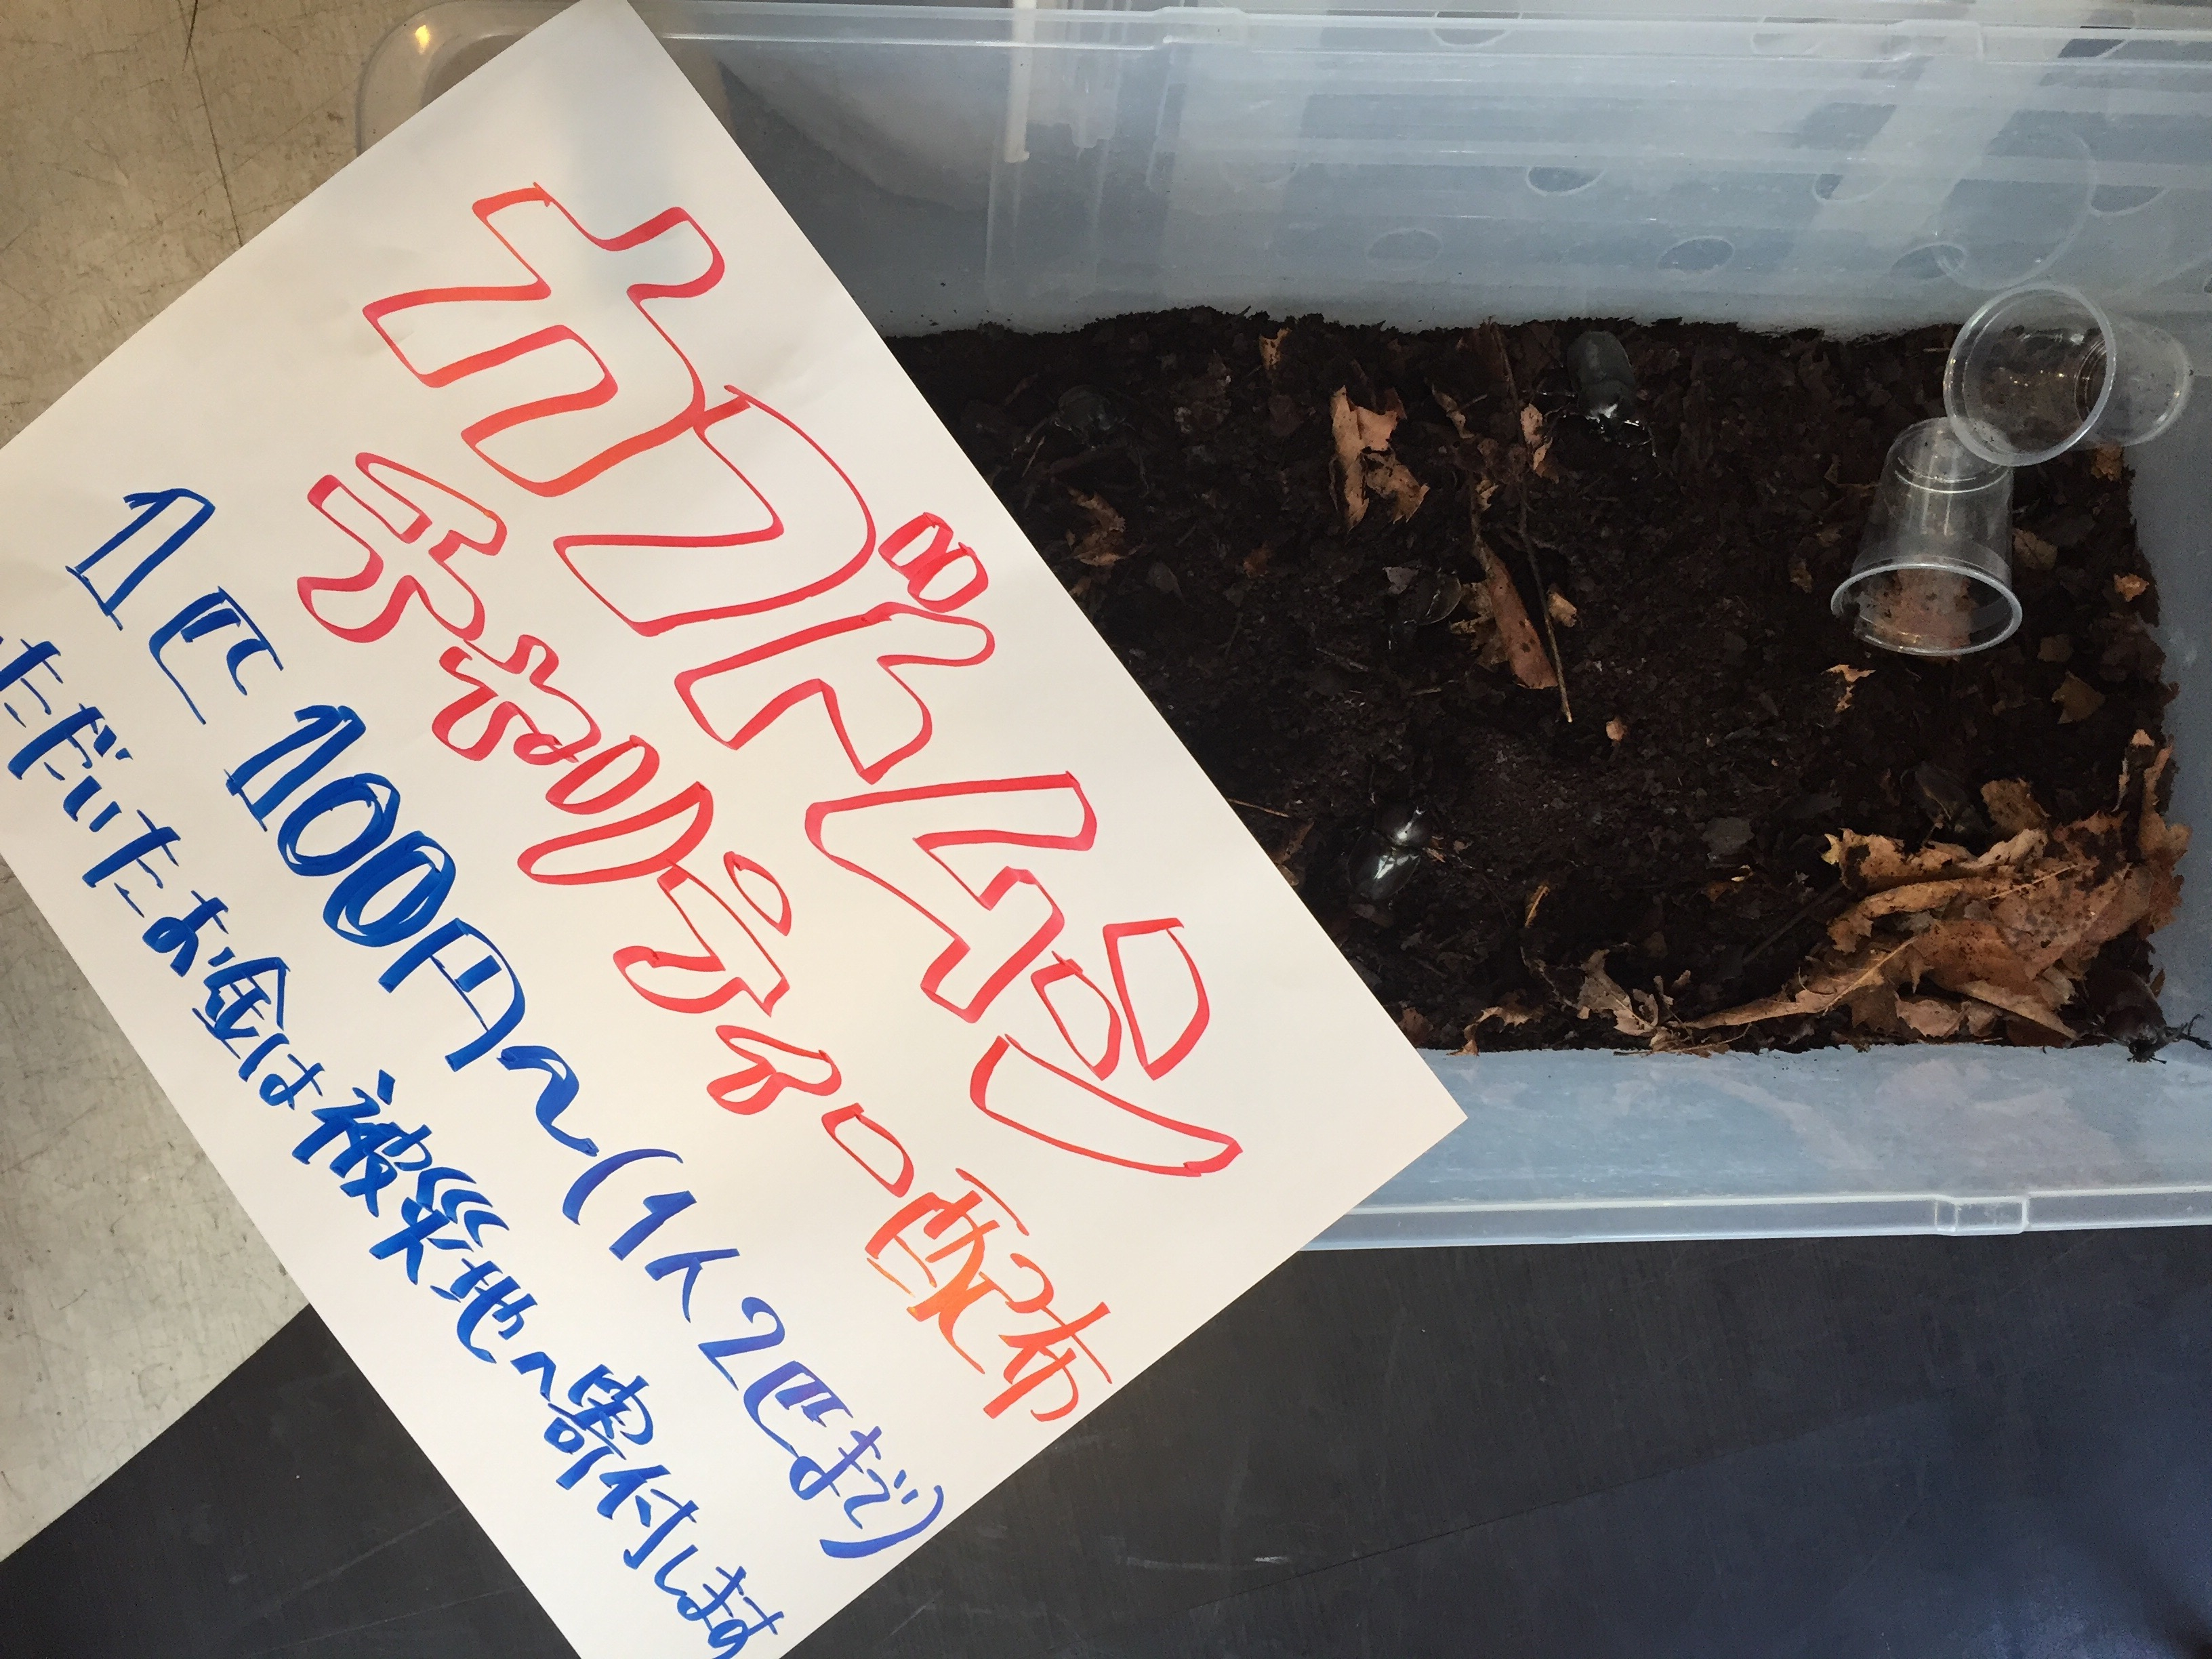 カブトムシ
チャリティー配布
1匹 100円～(1人2匹まで)
ただいたお金は被災地へ寄付します